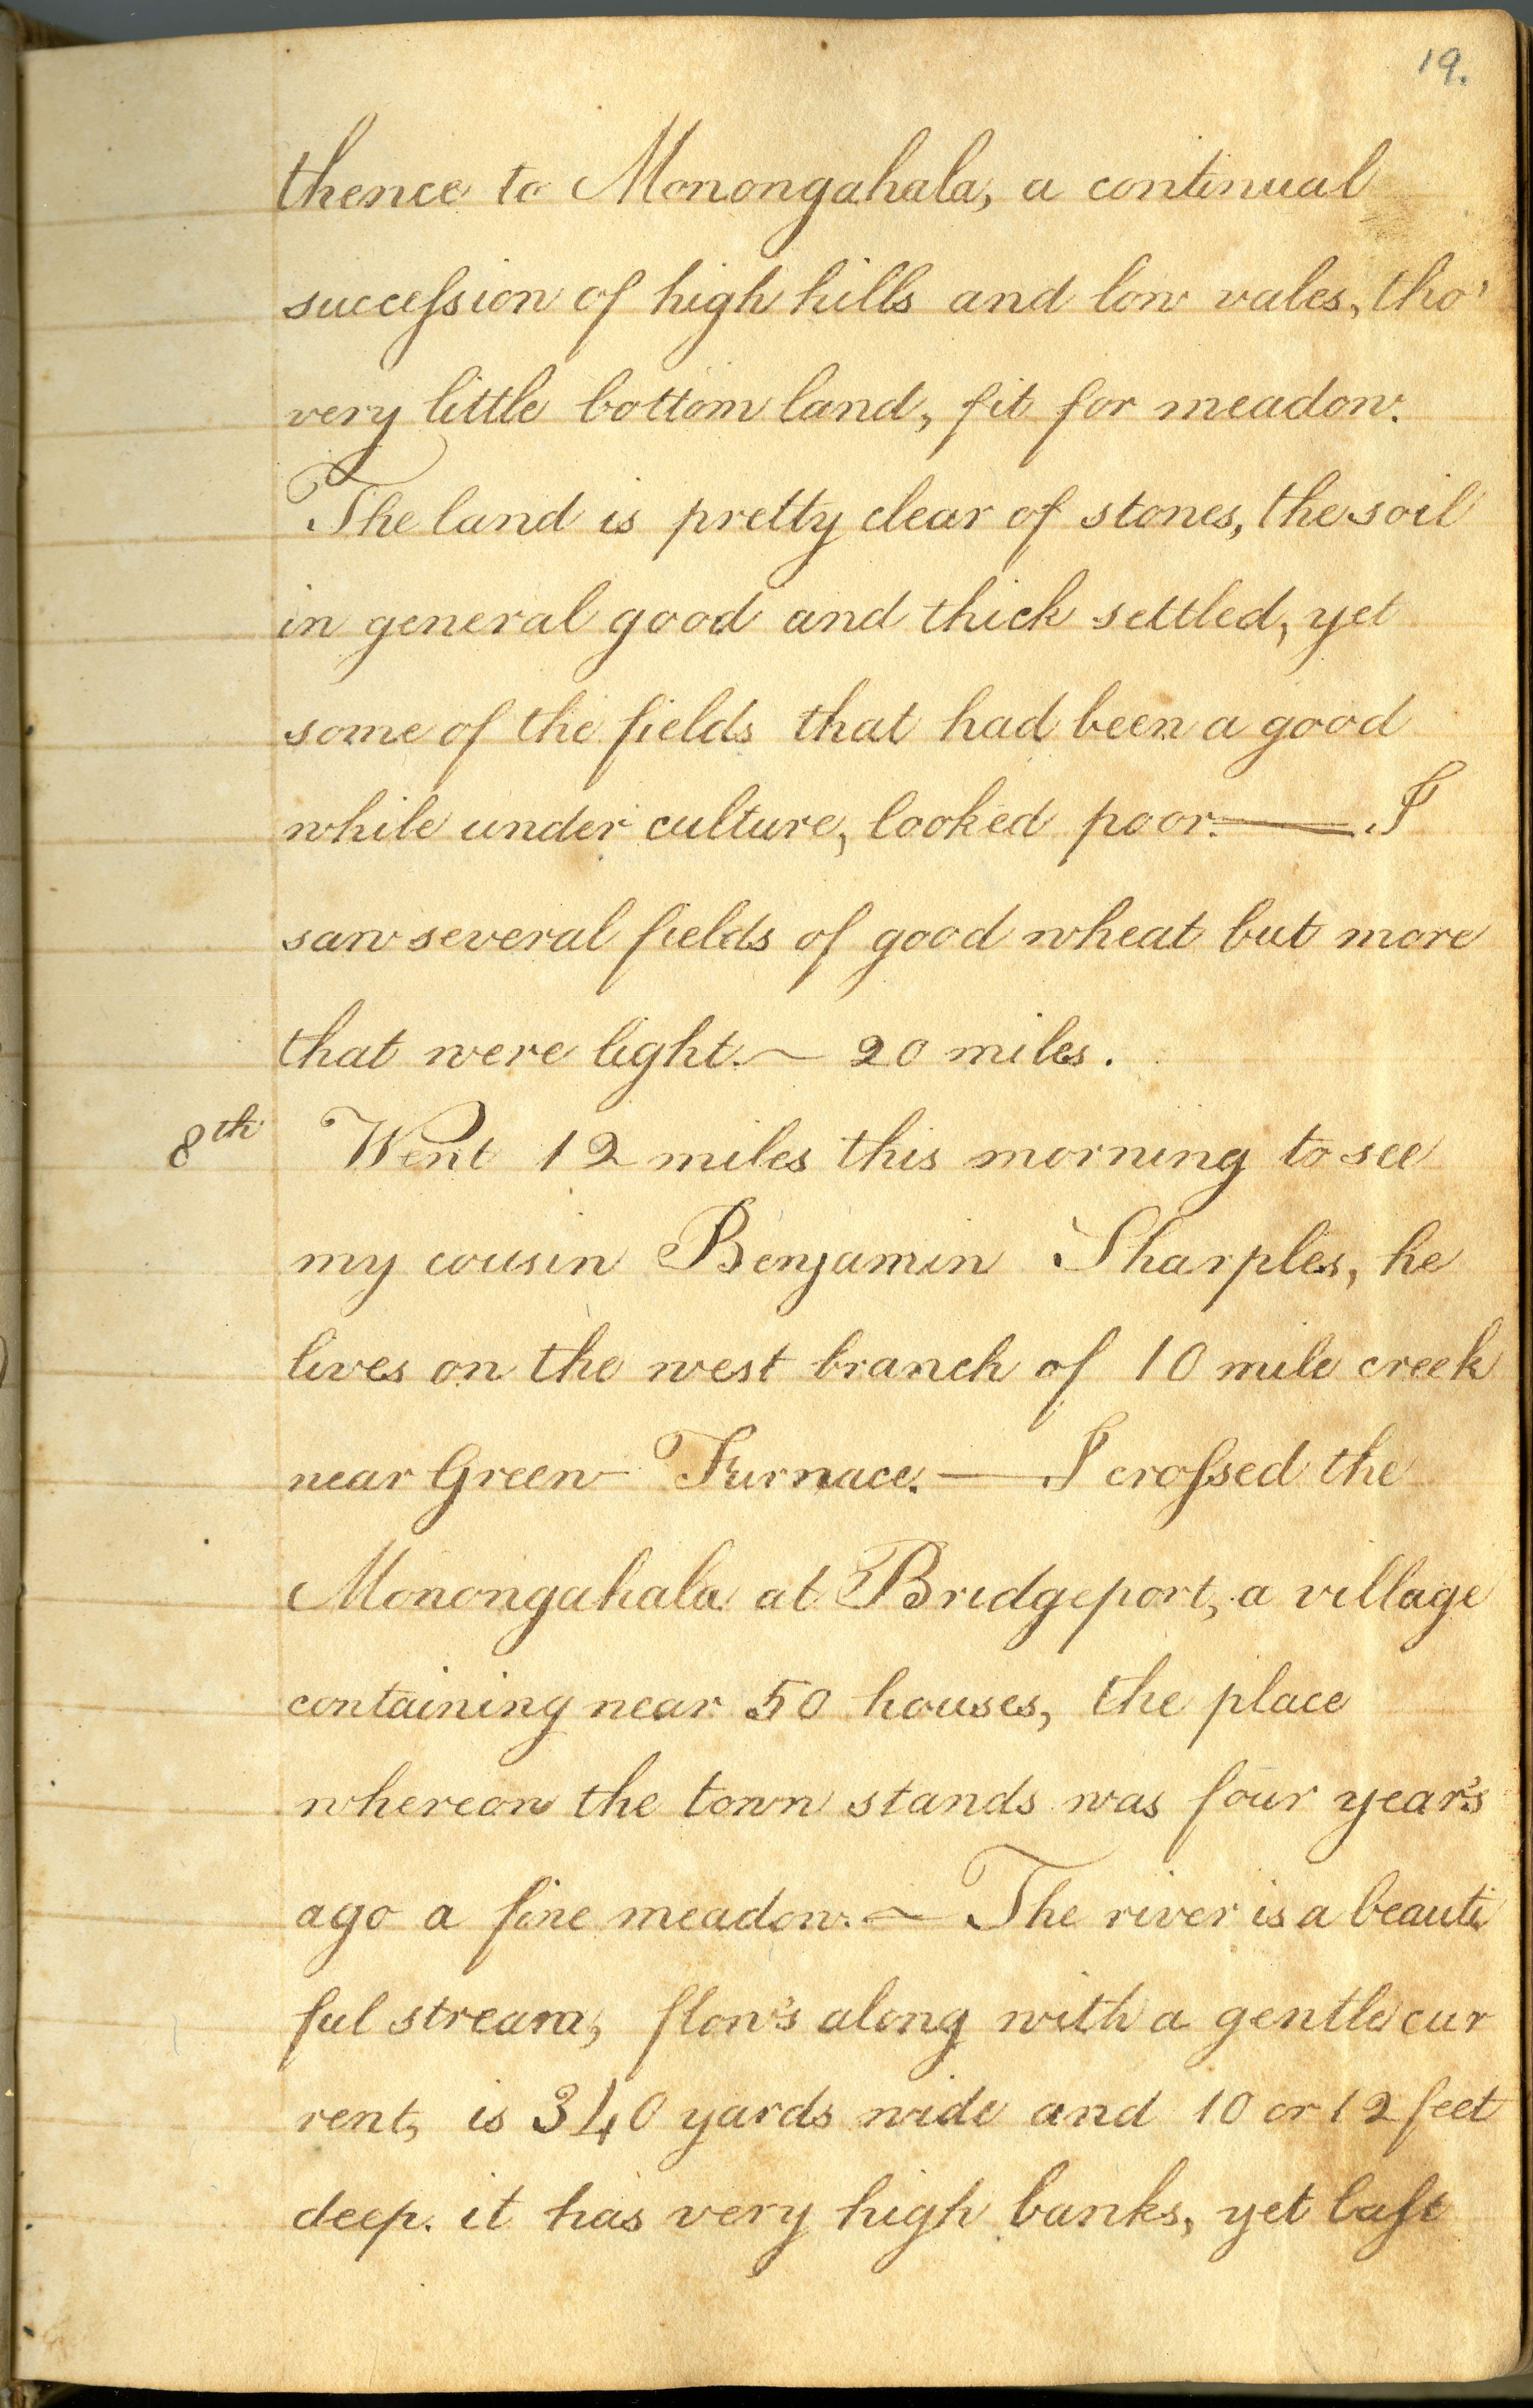 19.
thence to Monongahala, a continual
succeſsion of high hills and low vales, tho'
very little bottom land, fit for meadow.
The land is pretty clear of stones, the soil
in general good and thick settled, yet
some of the fields that had been a good
while under culture, looked poor. — I
saw several fields of good wheat but more
that were light. ~ 20 miles.
8th Went 12 miles this morning to see
my cousin Benjamin Sharples, he
lives on the west branch of 10 mile creek
near Green Furnace. — I croſsed the
Monongahala at Bridgeport, a village
containing near 50 houses, the place
whereon the town stands was four year's
ago a fine meadow. ~ The river is a beauti
ful stream, flow's along with a gentle cur
rent, is 340 yards wide and 10 or 12 feet
deep. it has very high banks, yet laſt